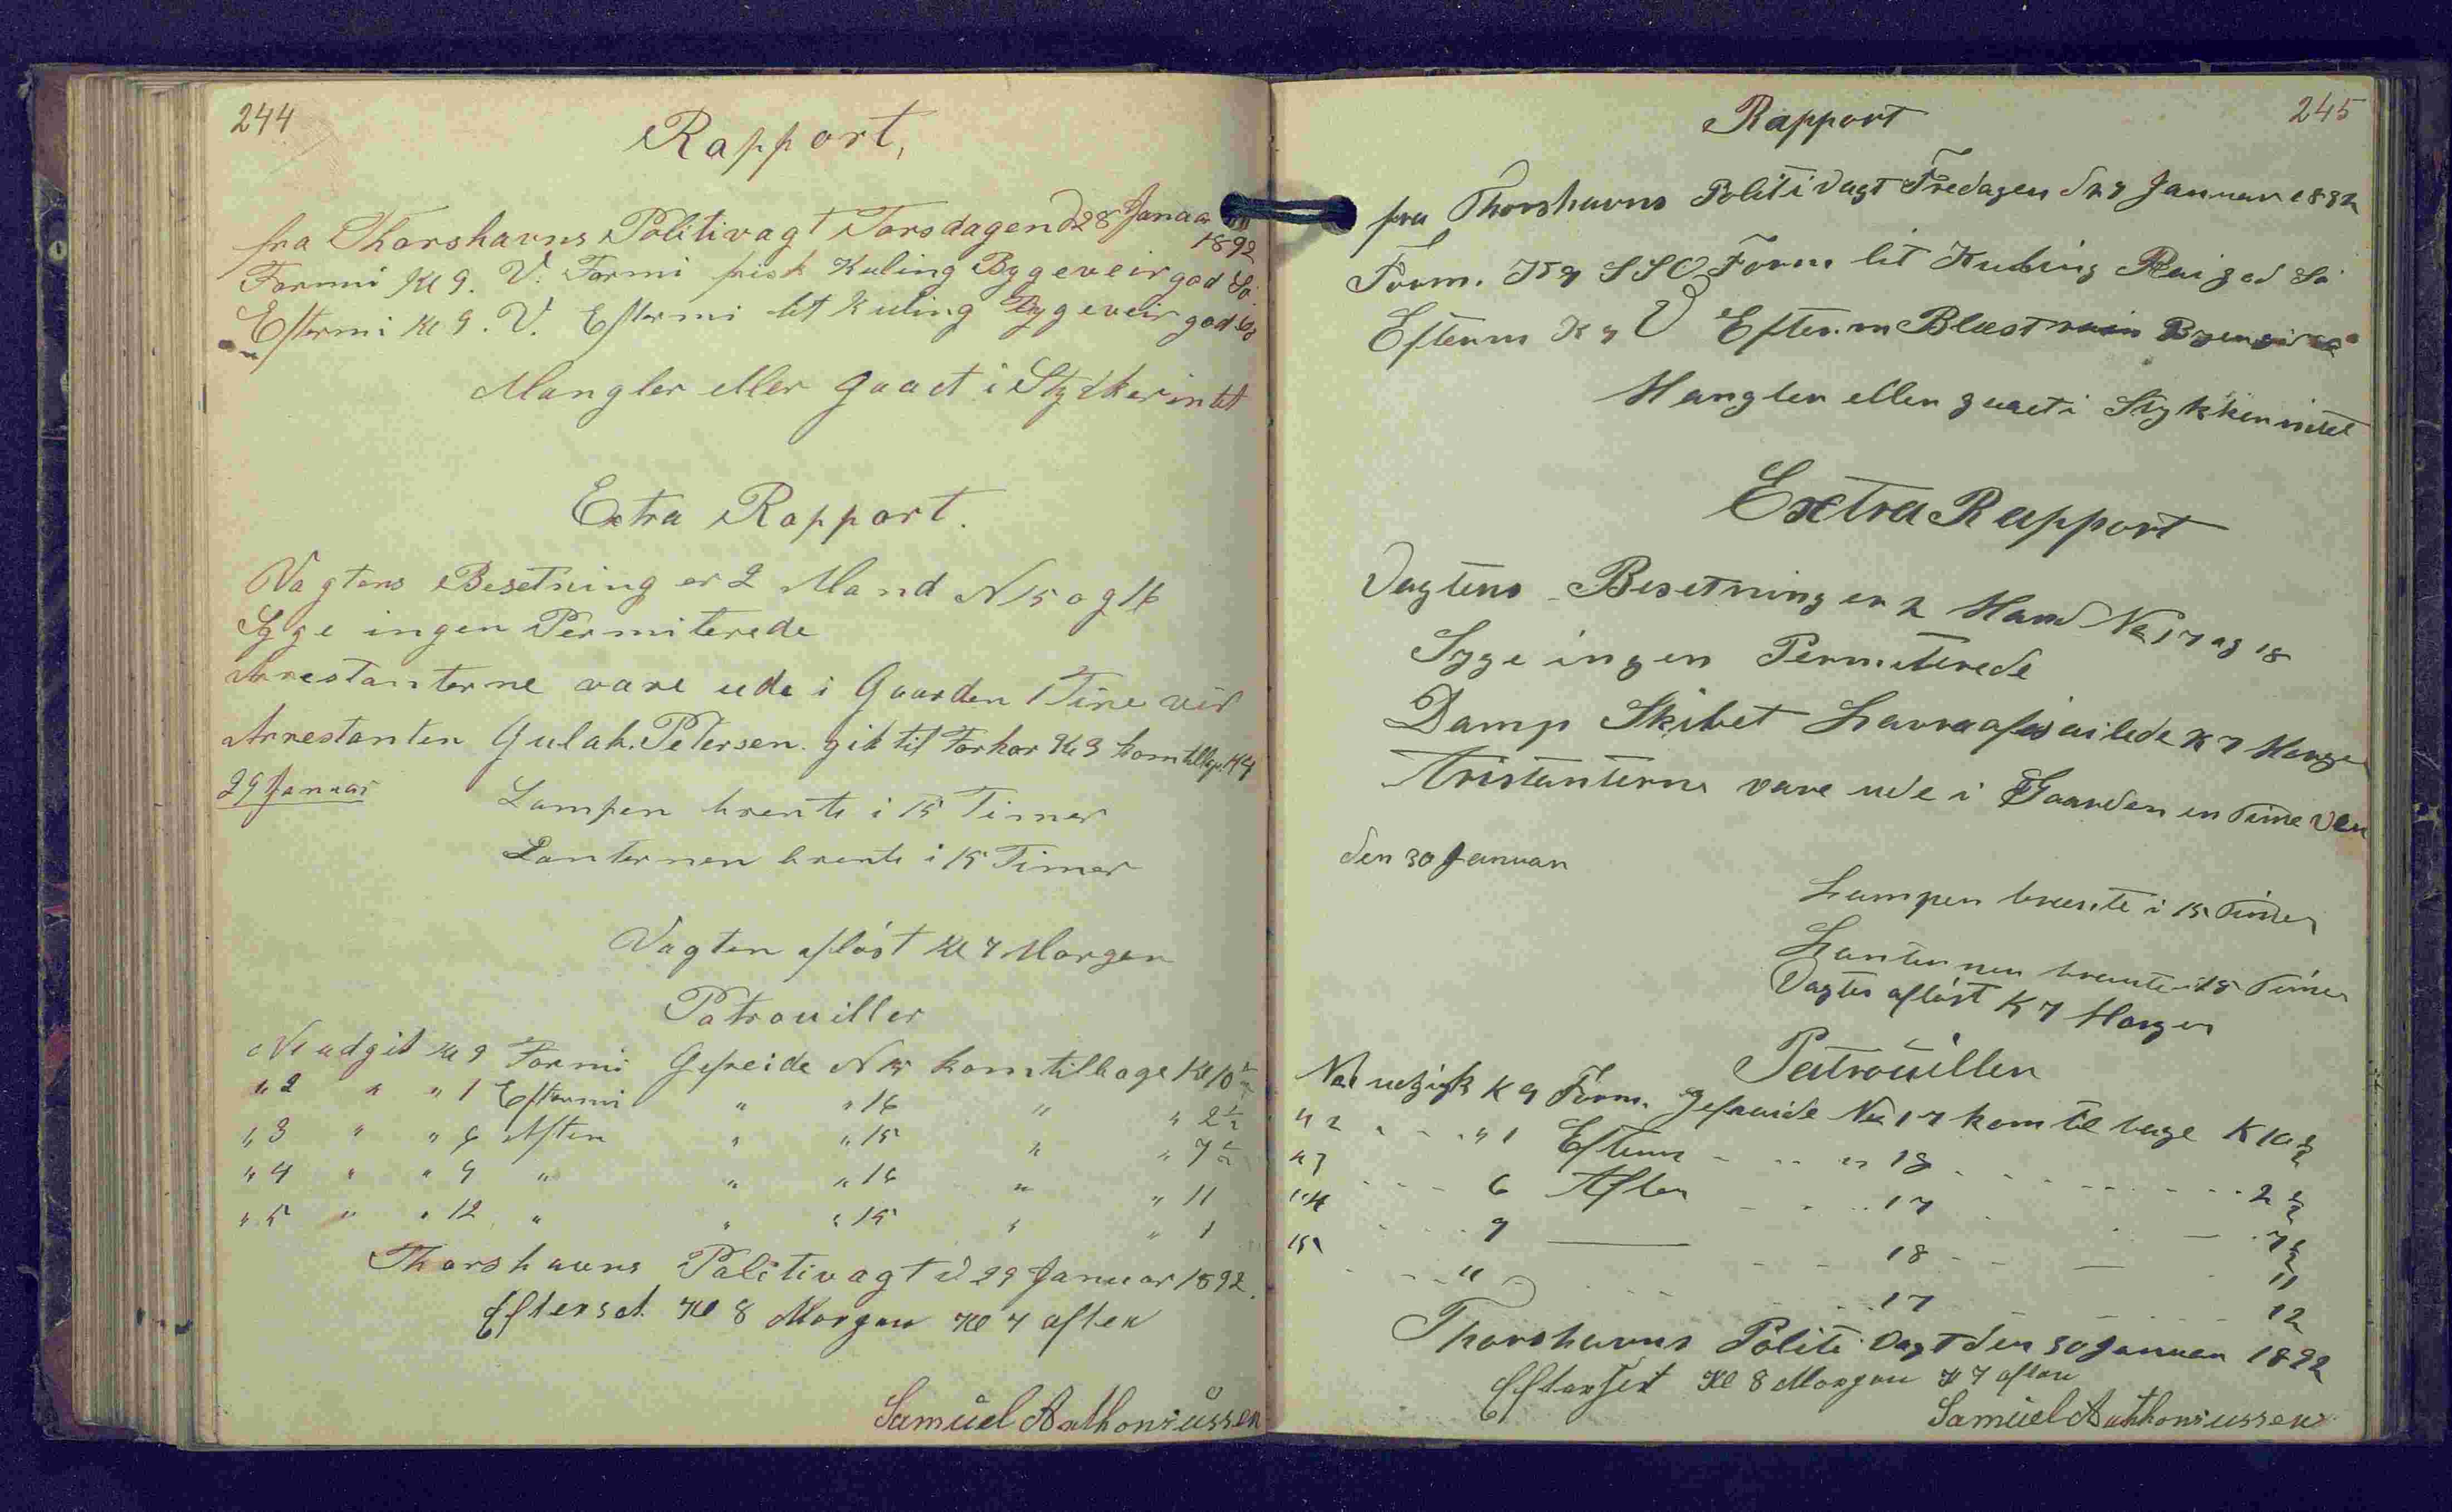 244
Rapport,
fra Thorshavns Politivagt Torsdagen d 28 Januar
1892
Formi Kl 9. V. Formi frisk Kuling Bygeveir god Sø
Eftermi Kl 9. V. Eftermi let Kuling Bygeveir god Sø
Mangler eller Gaaet i Stykker intet
Extra Rapport.
Vagtens Besetning er 2 Mand N 15 og 16
Syge ingen Permiterede
Arrestanterne vare ude i Gaarden 1 Time
Arrestanten Gulak. Petersen. gik til Forhør Kl 3 kom tilbage Kl 4
29 Januar
Lampen brente i 15 Timer
Lanternen brente i 15 Timer
Vagten afløst Kl 7 Morgen
Patrouiller
N 1 udgik Kl 9 Formi Gefreide N 15 kom tilbage Kl 10 1/2
" 2 " " 1 Eftermi " " 16 " " 2 1/2
" 3 " " 6 Aften " " 15 " " 7 1/2
" 4 " " 9 " " " 16 " " 11
" 5 " " 12 " " " 15 " " 1
Thorshavns Politivagt d 29 Januar 1892.
Efterset Kl 8 Morgen Kl 7 aften
Samuel Anthoniussen
245
Rapport
fra Thorshavns Politivagt Fredagen d 29 Januar 1892
Form. K 9 SSO Form let Kuling Regn god Sø
Efterm K 9 V Efter.m Blæst
Mangler eller gaaet i Stykker intet
Extra Rapport
Vagtens Besetning er 2 Mand No 17 og 18
Syge ingen Permiterede
Damp Skibet Laura afseilede K 7 Morgen
Aristanterne vare ude i Gaarden en Time
den 30 Januar
Lampen brente i 15 Timer
Lanternen brente i 15 Timer
Vagten afløst K 7 Morgen
Patrouiller
No 1 udgik K 9 Form. Gefreide No 17 kom til bage K 10 1/2
" 2 " 1 Efterm " 18 2 1/2
" 3 6 Aften 17 7 1/2
" 4 9 — 18 11
" 5 " 17 12
Thorshavns Politi Vagt den 30 Januar 1892
Efterset Kl 8 Morgen Kl 7 aften
Samuel Anthoniussen